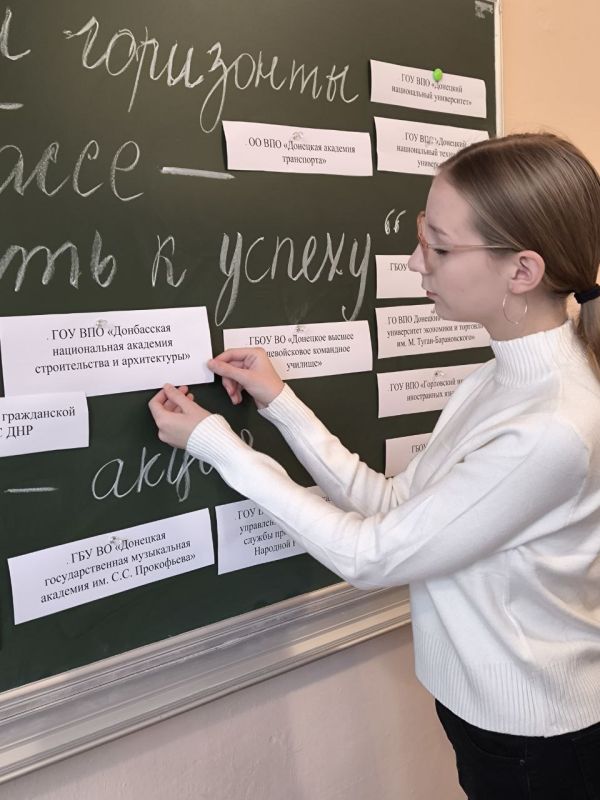 горизонты
. ГОУ ВПО «Донецкий
национальный университет»
. ОО ВПО «Донецкая академия
транспорта»
. ГОУ ВПО «Донецкий
национальный
–
ть к успеху"
ГБОУ
. ГОУ ВПО «Донбасская
национальная академия
строительства и архитектуры»
. ГБОУ ВО «Донецкое высшее
командное
училище»
ГО ВПО
университет экономики и торговли
им. М. Туган-Барановского»
. ГОУ ВПО «Горловский
иностранных
гражданской
ДНР
–
. ГБУ ВО «Донецкая
государственная музыкальная
академия им. С.С. Прокофьева»
. ГОУ
службы
Народной